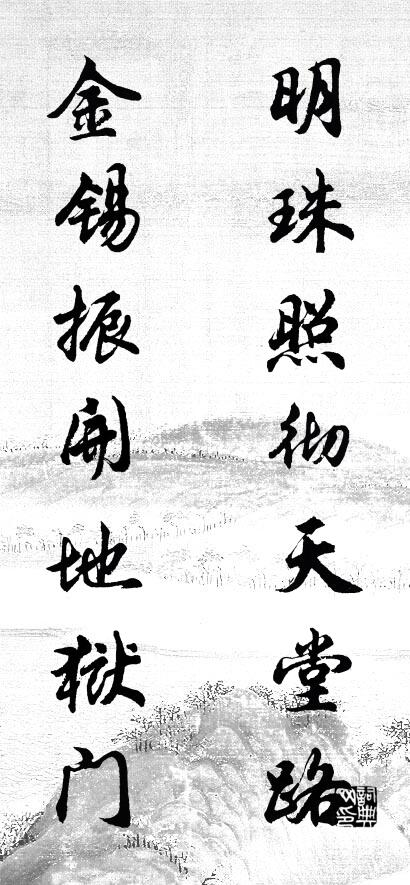 明珠照彻天堂路
金锡振開地狱门